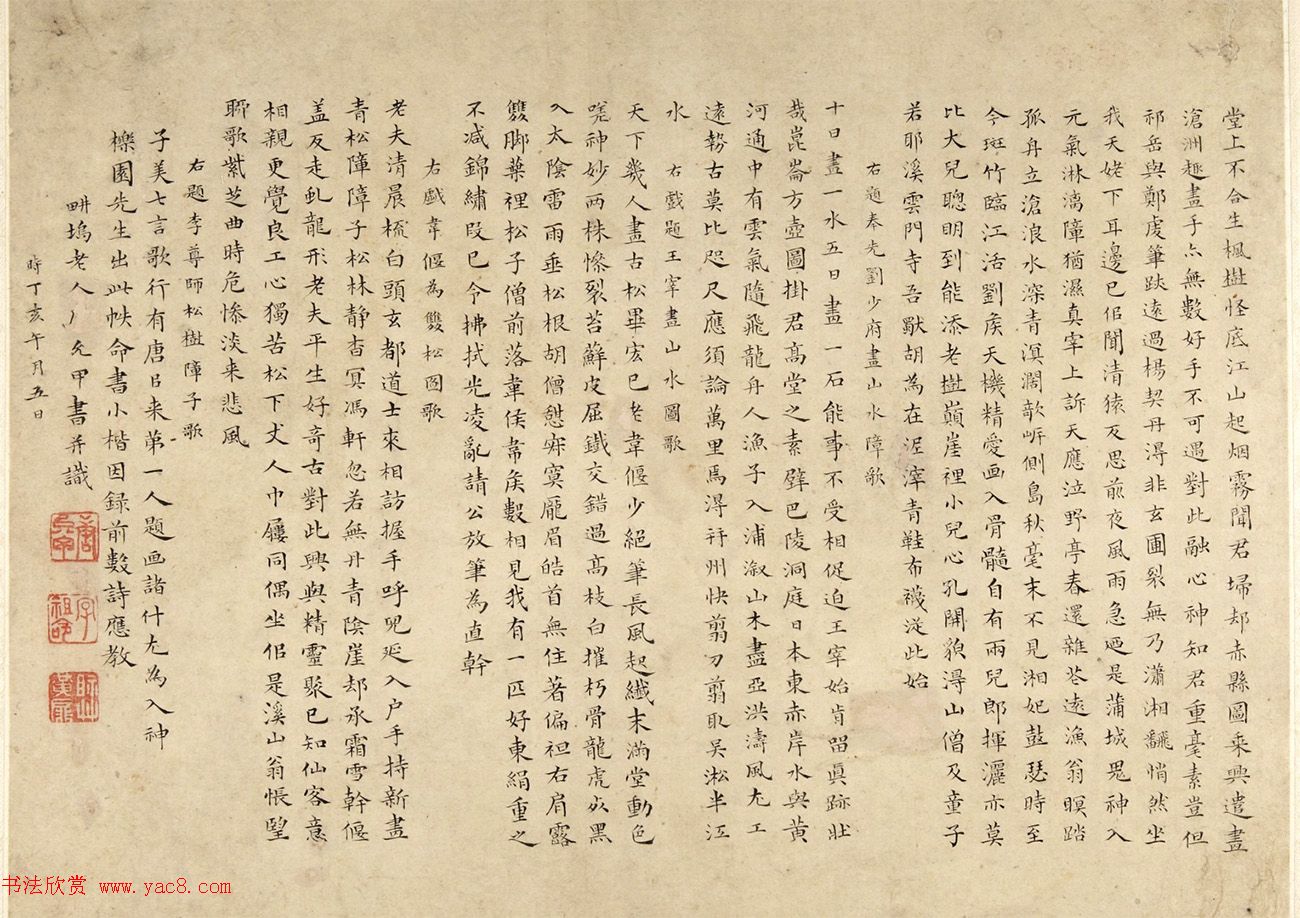 堂上不合生楓樹怪底江山起烟霧聞君埽却赤縣圖乘興遣畫
滄洲趣畫手亦無數好手不可遇對此融心神知君重毫素豈但
祁岳與鄭虔筆跡遠過楊契丹得非玄圃裂無乃瀟湘飜悄然坐
我天姥下耳邊已佀聞清猿反思前夜風雨急迺是蒲城鬼神入
元氣淋漓障猶濕真宰上訴天應泣野亭春還雜花遠漁翁暝踏
孤舟立滄浪水深青溟闊欹岍側島秋毫末不見湘妃鼓瑟時至
今斑竹臨江活劉矦天機精愛画入骨髓自有兩兒郎揮灑亦莫
比大兒聰明到能添老樹巔崖裡小兒心孔開貌得山僧及童子
若耶溪雲門寺吾獨胡為在泥滓青鞋布襪從此始
右題奉先劉少府畫山水障歌
十日畫一水五日畫一石能事不受相促迫王宰始肯留眞跡壯
哉崑崙方壺圖掛君高堂之素壁巴陵洞庭日本東赤岸水與黃
河通中有雲氣隨飛龍舟人漁子入浦溆山木盡亞洪濤風尤工
遠勢古莫比咫尺應須論萬里焉得幷州快剪刀剪取吳淞半江
水
右戲題王宰畫山水圖歌
天下幾人畫古松畢宏已老韋偃少絕筆長風起纖末滿堂動色
嗟神妙兩株慘裂苔蘚皮屈鐵交錯迴高枝白摧朽骨龍虎死黑
入太陰雷雨垂松根胡僧憩寂寞龐眉皓首無住著偏袒右肩露
雙脚葉裡松子僧前落韋矦韋矦數相見我有一匹好東絹重之
不减錦繡段已令拂拭光凌亂請公放筆為直幹
右戲韋偃為雙松圖歌
老夫清晨梳白頭玄都道士來相訪握手呼兒延入户手持新畫
青松障障子松林静杳冥馮軒忽若無丹青陰崖却承霜雪幹偃
盖反走虬龍形老夫平生好奇古對此興與精靈聚已知仙客意
相親更覺良工心獨苦松下丈人巾屨同偶坐佀是溪山翁悵望
聊歌紫芝曲時危慘淡来悲風
右題李尊師松樹障子歌
子美七言歌行有唐㠯来第一人題画諸什尤為入神
櫟園先生出此帙命書小楷因録前數詩應教
畊塢老人允甲書并識
時丁亥午月五日
书法欣赏 www.yac8.com